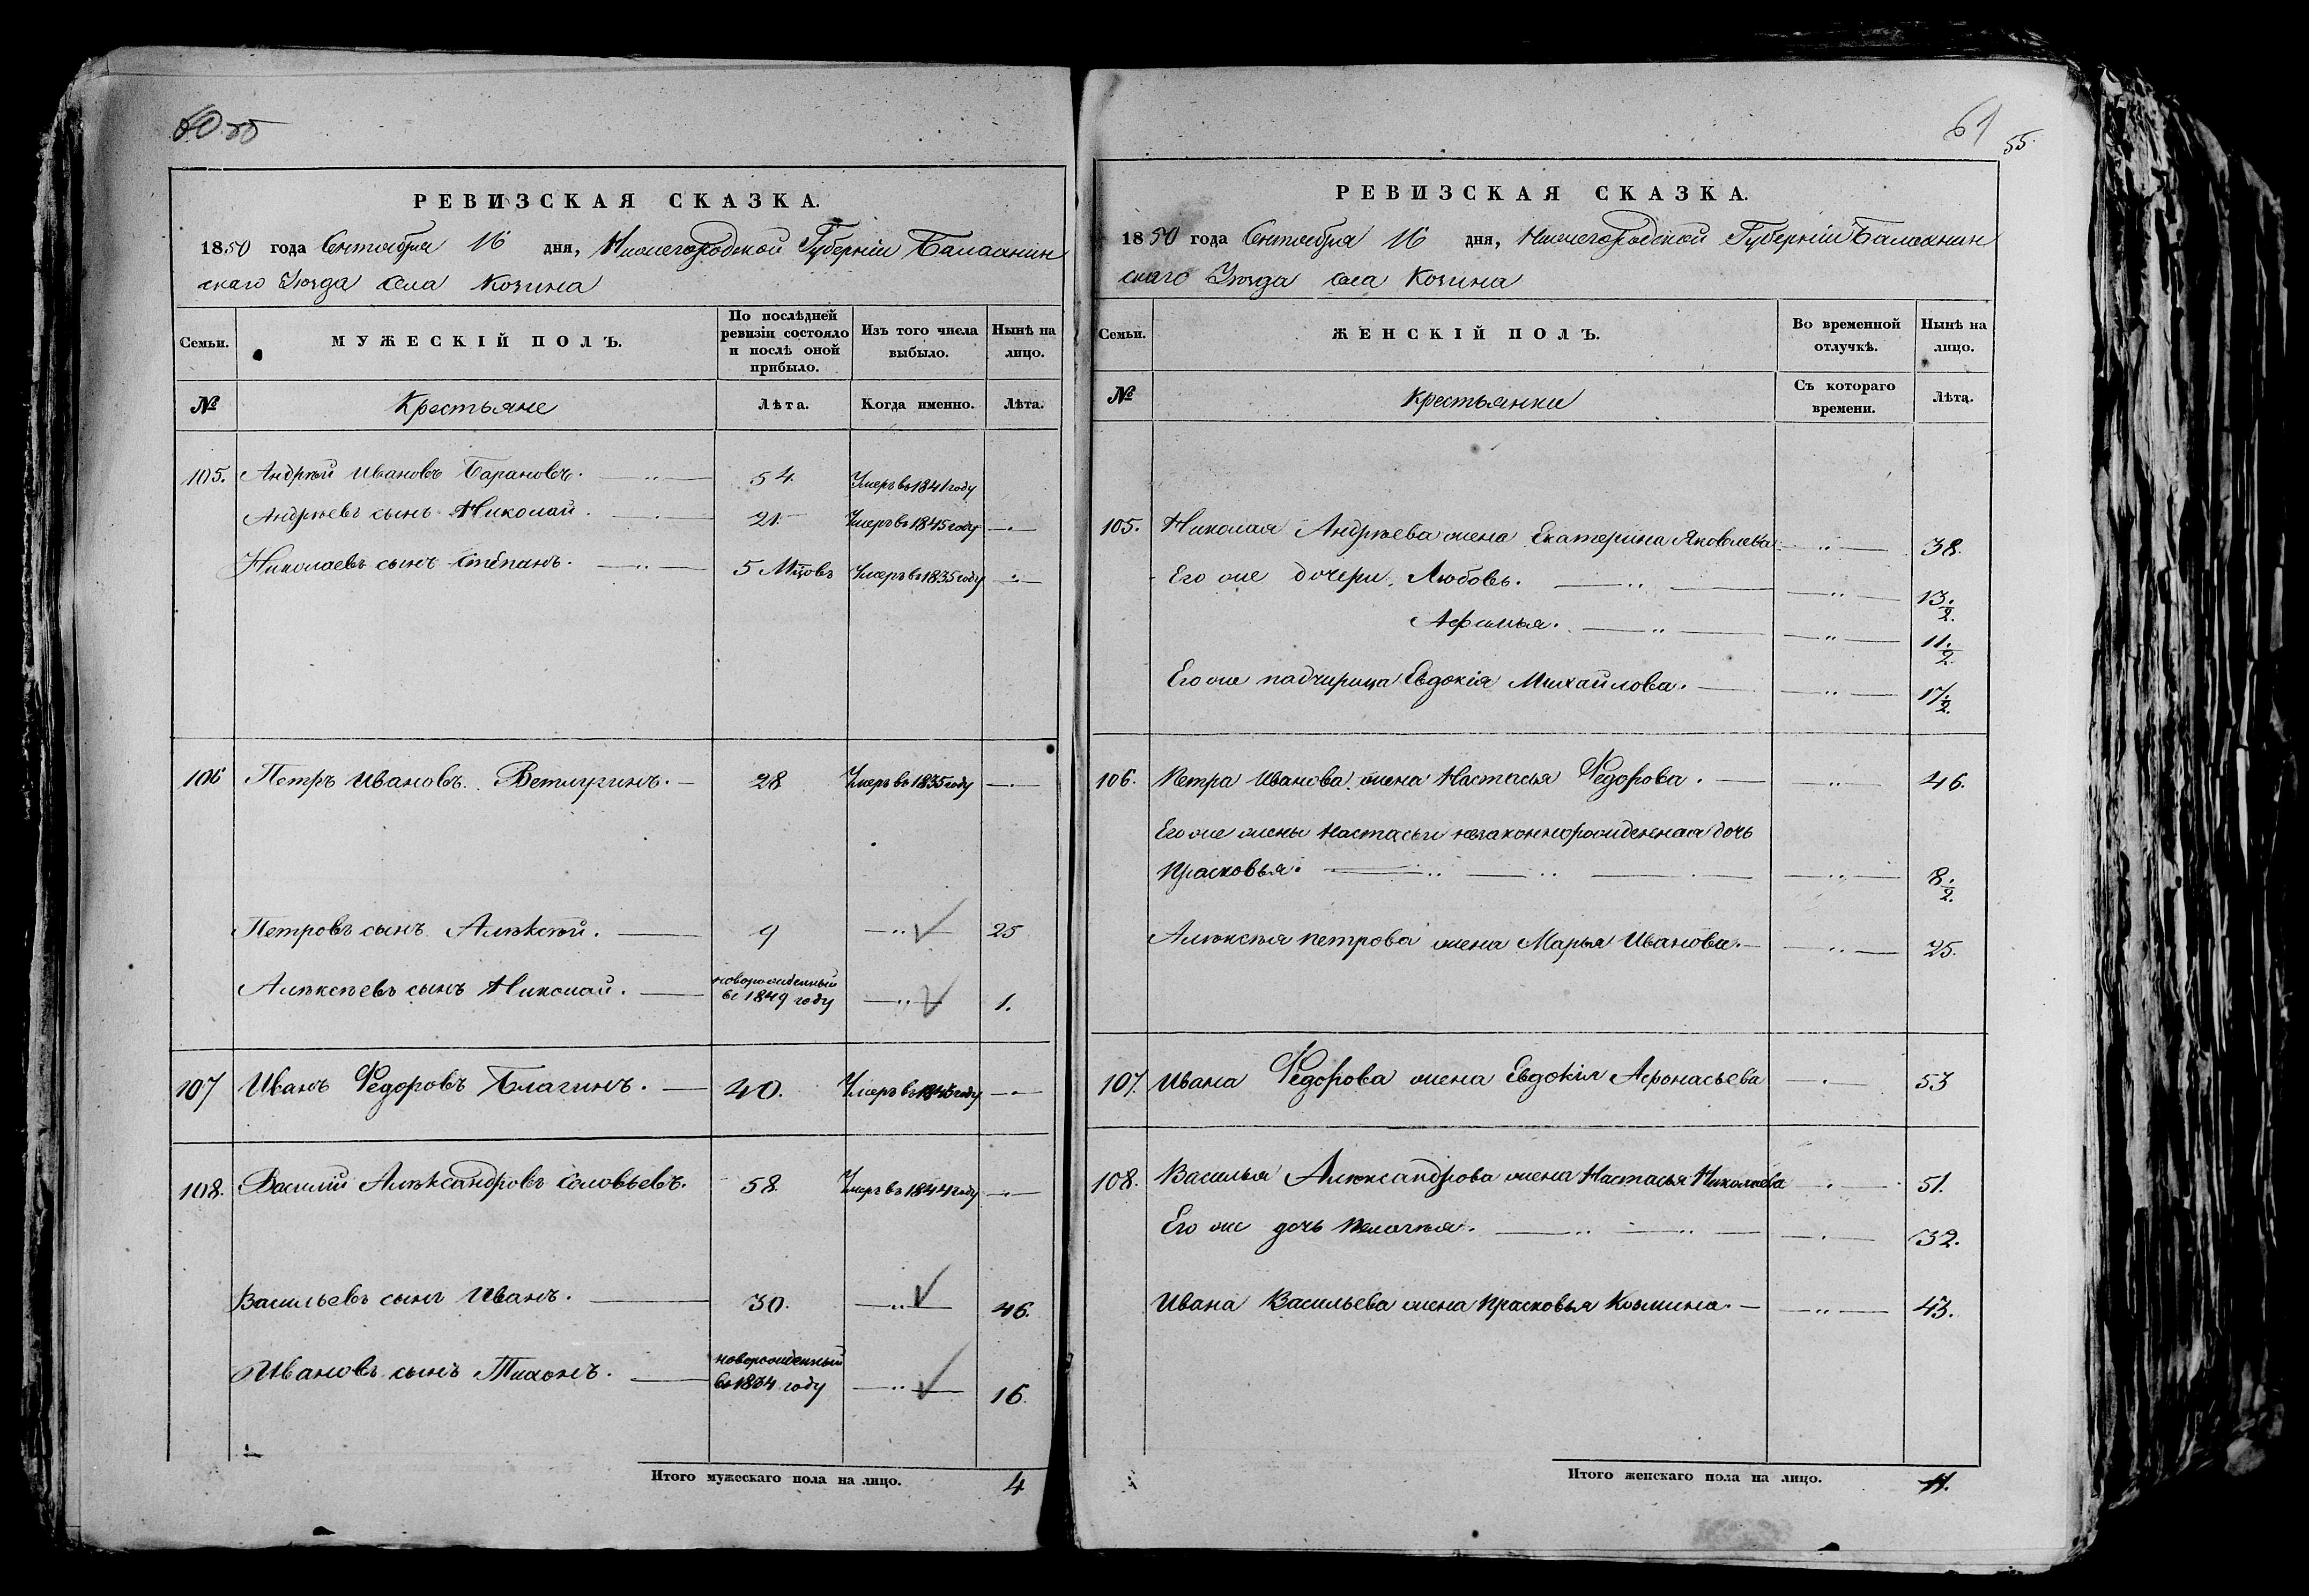 РЕВИЗСКАЯ СКАЗКА.
1850 года Сентября 16 дня, Нижегородской Губерніи Балахнин
скаго Уѣзда Села Козина
Семьи. МУЖЕСКІЙ ПОЛЪ. По послѣдней ревизіи состояло и послѣ оной прибыло. Изъ того числа выбыло. Нынѣ на лицо.
№ Крестьяне Лѣта. Когда именно. Лѣта.
105. Андрѣй Ивановъ Барановъ. 54 Умеръ въ 1841 году
Андрѣевъ сынъ Николай. 21. Умеръ въ 1845 году
Николаевъ сынъ Степанъ. 5 Мцовъ Умеръ въ 1835 году
106 Петръ Ивановъ Ветлугинъ. 28 Умеръ въ 1835 году
Петровъ сынъ Алѣксѣй. 9 25
Алѣксѣевъ сынъ Николай. новорожденный въ 1849 году 1.
107 Иванъ Федоровъ Благинъ. 40. Умеръ въ 1845 году
108. Василій Алѣксандровъ Соловьевъ. 58 Умеръ въ 1844 году
Васильевъ сынъ Иванъ. 30. 46.
Ивановъ сынъ Тихонъ. новорожденный въ 1834 году 16
Итого мужескаго пола на лицо. 4
61 55.
РЕВИЗСКАЯ СКАЗКА.
1850 года Сентября 16 дня, Нижегородской Губерніи Балахнин
скаго Уѣзда Села Козина
Семьи. ЖЕНСКІЙ ПОЛЪ. Во временной отлучкѣ. Нынѣ на лицо.
№ Крестьянки Съ котораго времени. Лѣта.
105. Николая Андрѣева жена Екатерина Яковлева 38.
Его же дочери. Любовь. 13 1/2
Афимья. 11 1/2.
Его же падчирица Евдокія Михайлова. 17 1/2.
106. Петра Иванова жена Настасья Федорова. 46.
Его же жены Настасьи незаконнорожденная дочь
Прасковья. 8 1/2.
Алѣксѣя петрова жена Марья Иванова. 25.
107. Ивана Федорова жена Евдокія Афонасьева 53
108. Василья Алѣксандрова жена Настасья Николаева 51.
Его же дочь Пелагѣя. 32.
Ивана Васильева жена Прасковья Козмина. 43.
Итого женскаго пола на лицо. 11.